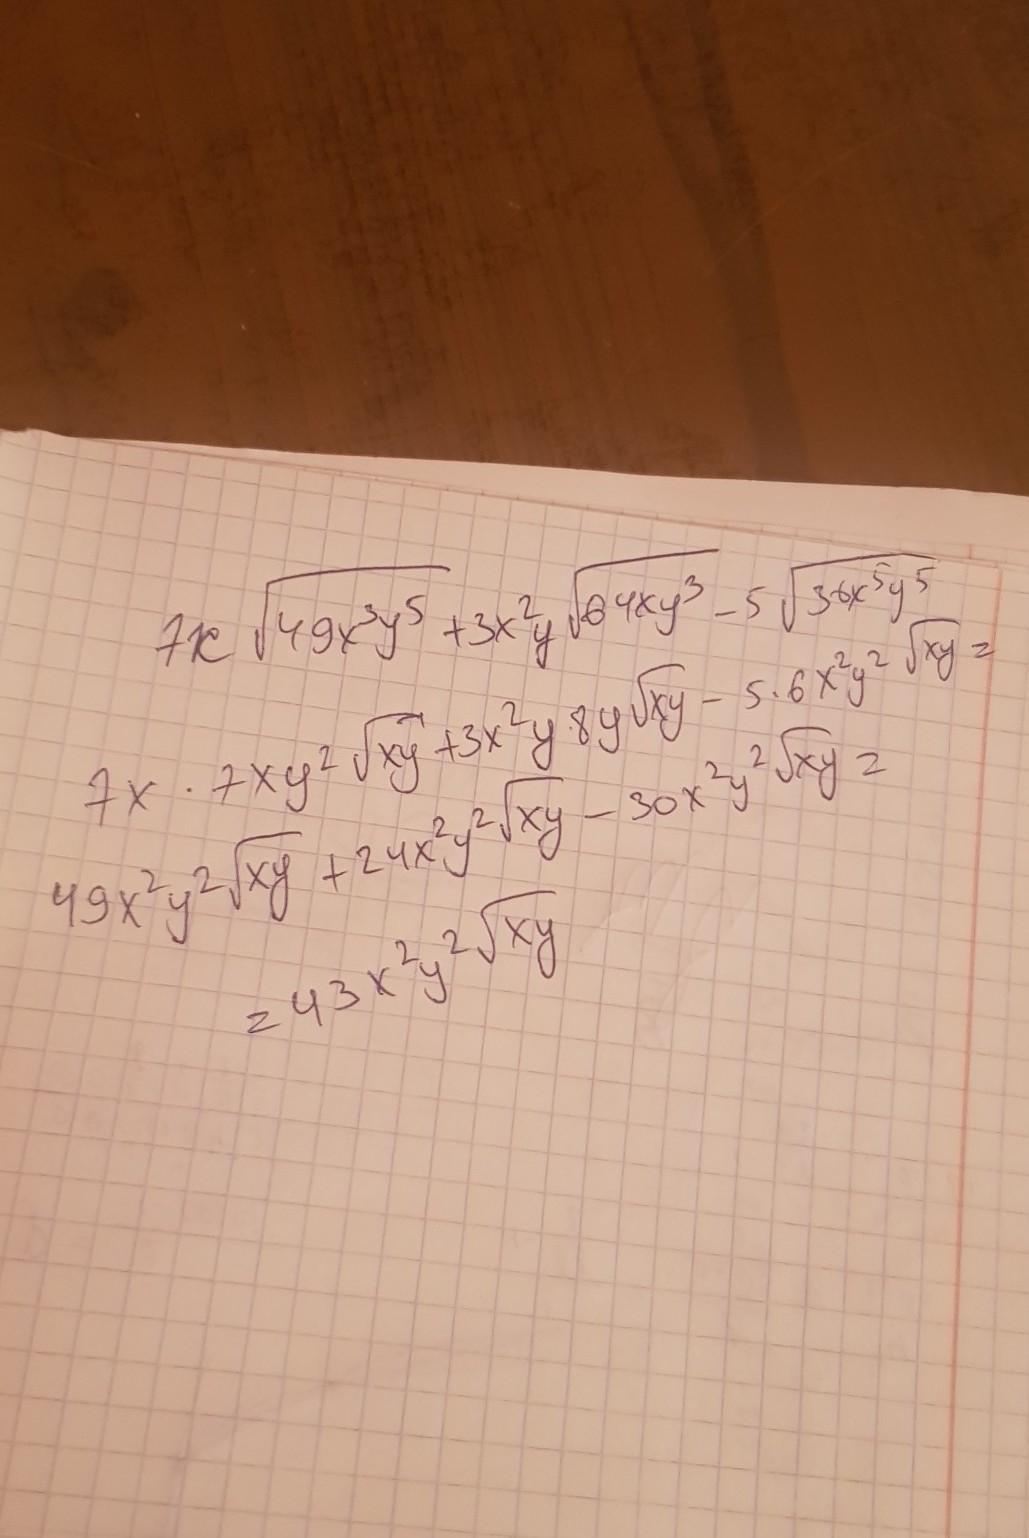 7x √(49x³y⁵) + 3x²y √(64xy³) – 5 √(36x⁵y⁵)
7x · 7xy² √(xy) + 3x²y · 8y √(xy) – 5 · 6x²y² √(xy) =
49x²y² √(xy) + 24x²y² √(xy) – 30x²y² √(xy) =
= 43x²y² √(xy)